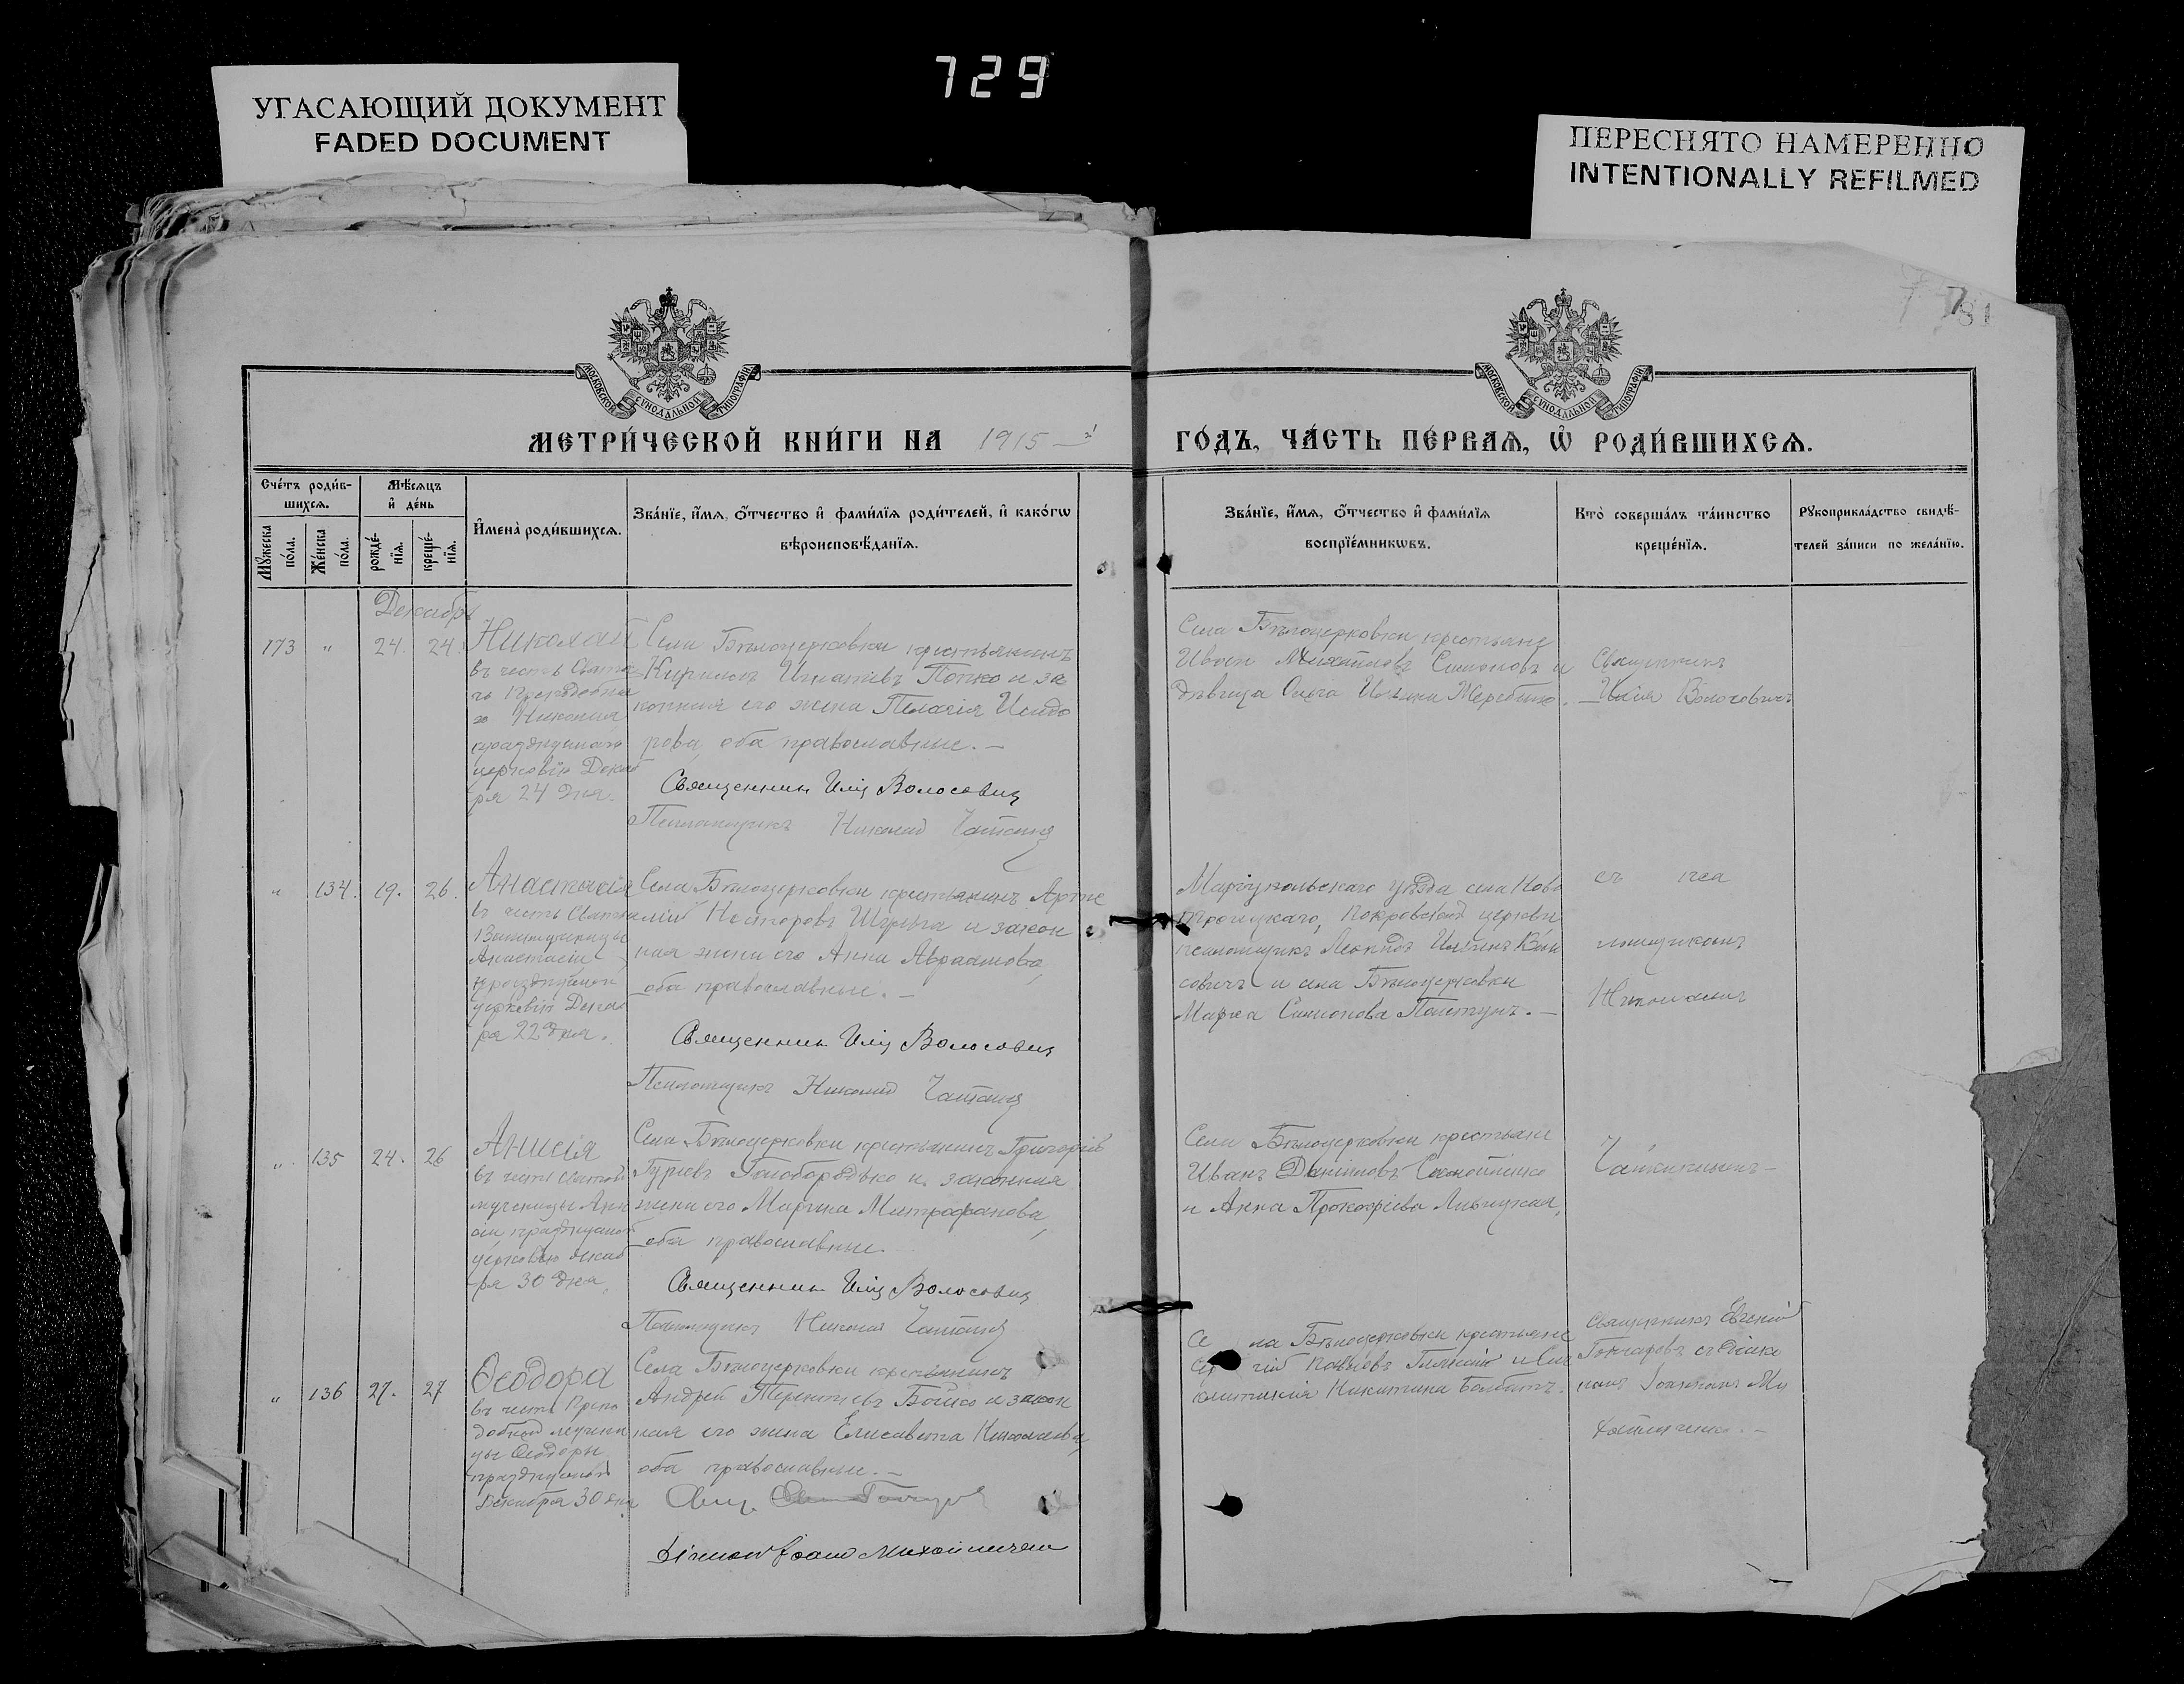 729
УГАСАЮЩИЙ ДОКУМЕНТ
FADED DOCUMENT
ПЕРЕСНЯТО НАМЕРЕННО
INTENTIONALLY REFILMED
81
МОСКОВСКОЙ СѴНОДАЛЬНОЙ ТИПОГРАФІИ
МОСКОВСКОЙ СѴНОДАЛЬНОЙ ТИПОГРАФІИ
МЕТРИ́ЧЕСКОЙ КНИ́ГИ НА 1915
ГО́ДЪ, ЧА́СТЬ ПЕ́РВАѦ, Ѡ҆ РОДИ́ВШИХСѦ.
Сче́тъ роди́в-
шихсѧ.
Мꙋжеска по́ла.
Же́нска по́ла.
Мѣ́сѧцъ
и҆ де́нь
рожде́-
нїѧ.
креще́-
нїѧ.
И҆мена̀ роди́вшихсѧ.
Зва́нїе, и҆́мѧ, ѻ҆́тчество и҆ фами́лїѧ роди́телей, и҆ како́гѡ
вѣроисповѣ́данїѧ.
Зва́нїе, и҆́мѧ, ѻ҆́тчество и҆ фами́лїѧ
воспрїе́мникѡвъ.
Кто̀ соверша́лъ та́инство
креще́нїѧ.
Рꙋкоприкла́дство свидѣ́-
телей за́писи по жела́нїю.
Декабрь
173 " 24. 24.
Николай
въ честь Свята
го Преподобна
го Никол
празднуемаго
церковію Декаб
ря 24 дня.
Села Бѣлоцерковки крестьянинъ
Кириллъ Игнатіевъ Попко и за
конная его жена Пелагія Исидо
рова, оба православные. —
Священникъ Илія Волосовичъ
Псаломщикъ Николай
Села Бѣлоцерковки крестьяне
Иванъ Михайловъ Симоновъ и
дѣвица Ольга Ильина
Священникъ
Илія Волосовичъ
" 134. 19. 26.
Анастасія
въ честь Святой
Великомученицы
Анастасіи
празднуемой
церковію Декаб
ря 22 дня.
Села Бѣлоцерковки крестьянинъ Арте
мій Несторовъ Шульга и закон
ная жена его Анна Авраамова,
оба православные. —
Священникъ Илія Волосовичъ
Псаломщикъ Николай
Маріупольскаго уѣзда села Ново
троицкаго, Покровской церкви
псаломщикъ Леонидъ Ильинъ Воло
совичъ и села Бѣлоцерковки
Марѳа Симонова
съ пса
ломщикомъ
Николаемъ
" 135 24. 26
Анисія
въ честь Святой
мученицы Анис
іи, празднуемой
церковію Декаб
ря 30 дня.
Села Бѣлоцерковки крестьянинъ Григорій
Гуріевъ Голобородько и законная
жена его Марина Митрофанова,
оба православные.
Священникъ Илія Волосовичъ
Псаломщикъ Николай
Села Бѣлоцерковки крестьяне
Иванъ Даніиловъ Самойленко
и Анна Прокофіева
" 136 27. 27
Ѳеодора
въ честь Препо
добной мучени
цы Ѳеодоры
празднуемой
Декабря 30 дня.
Села Бѣлоцерковки крестьянинъ
Андрей Терентіевъ Бойко и закон
ная его жена Елисавета Николаева,
оба православные. —
Свящ.
Діаконъ Іоаннъ Михайличенко
Села Бѣлоцерковки крестьяне
Павловъ и
Никитина
Священникъ Евгеній
Гончаровъ съ Діако
номъ Іоанномъ Ми
хайличенко. —